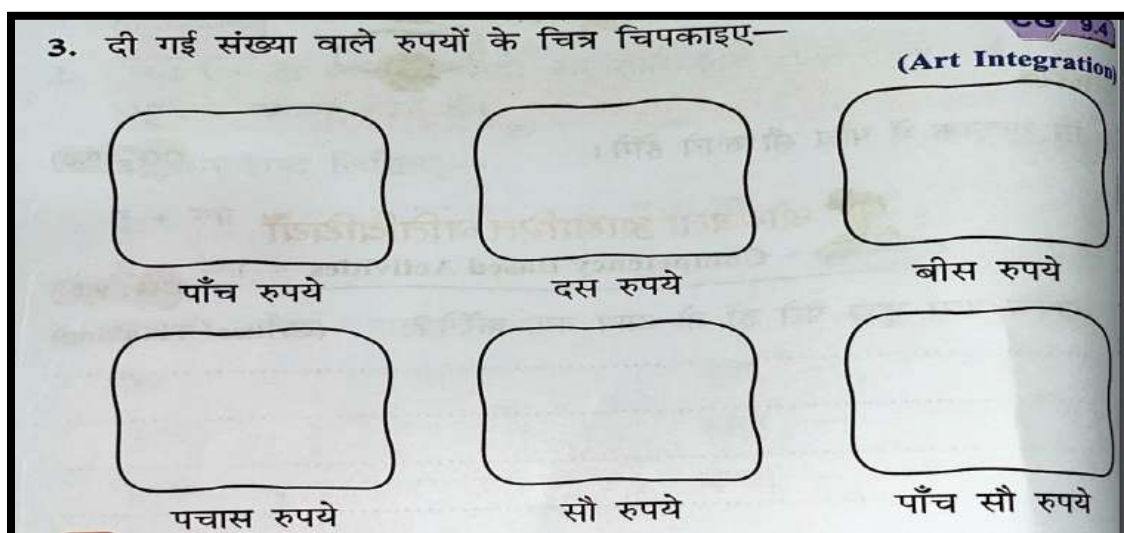 CG 9.4
3. दी गई संख्या वाले रुपयों के चित्र चिपकाइए—
(Art Integration)
पाँच रुपये
दस रुपये
बीस रुपये
पचास रुपये
सौ रुपये
पाँच सौ रुपये